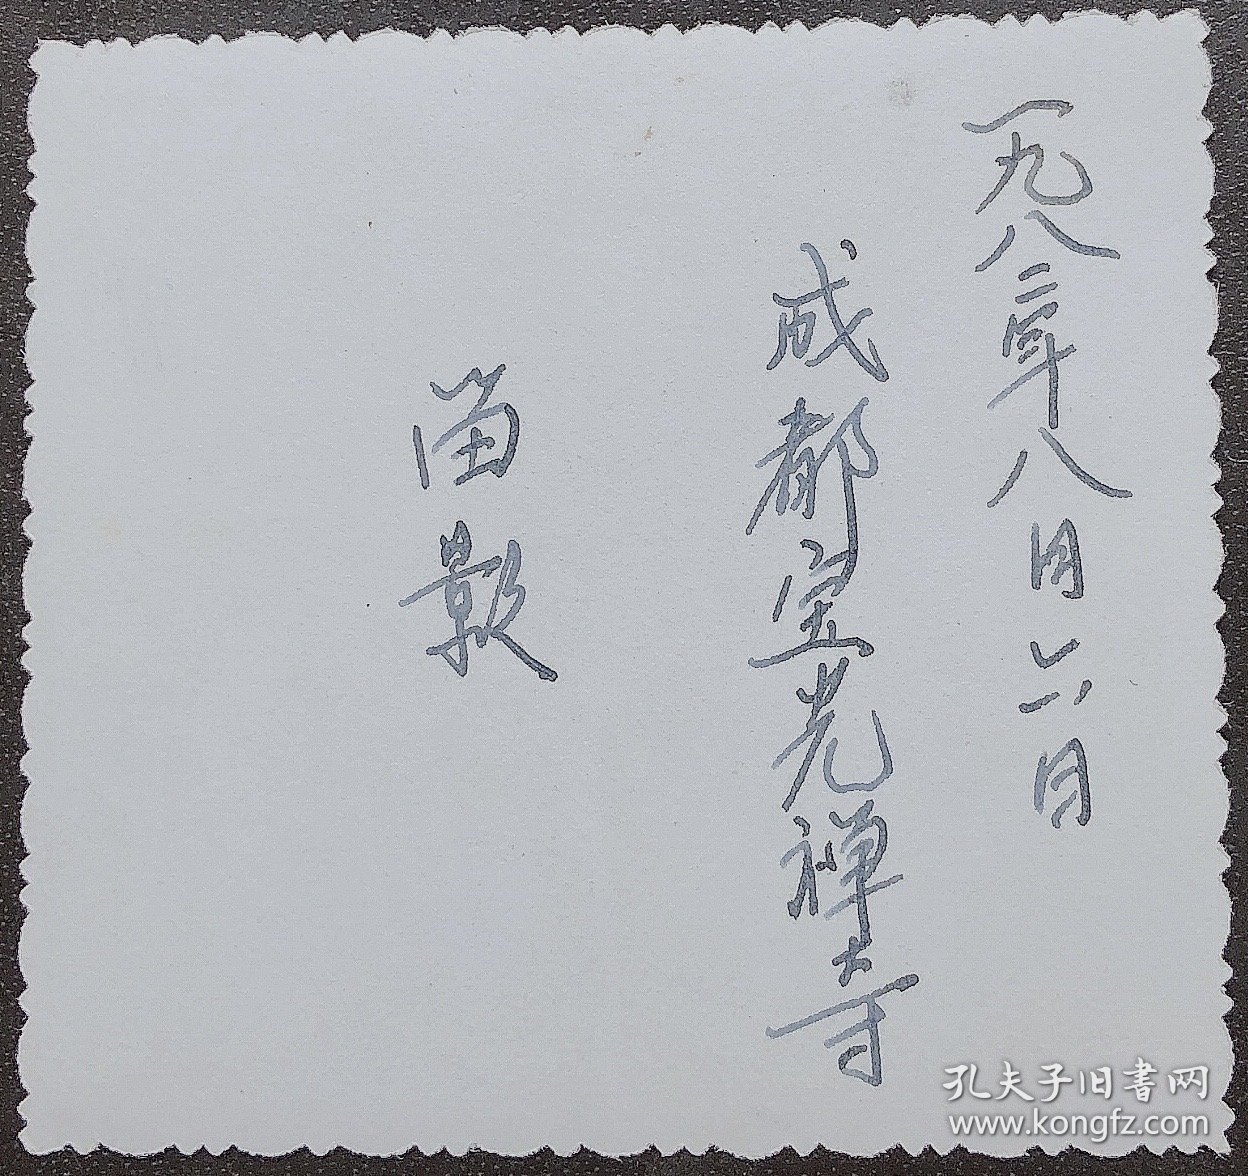 一九八二年八月六日
成都宝光禅寺
留影
孔夫子旧書网
www.kongfz.com